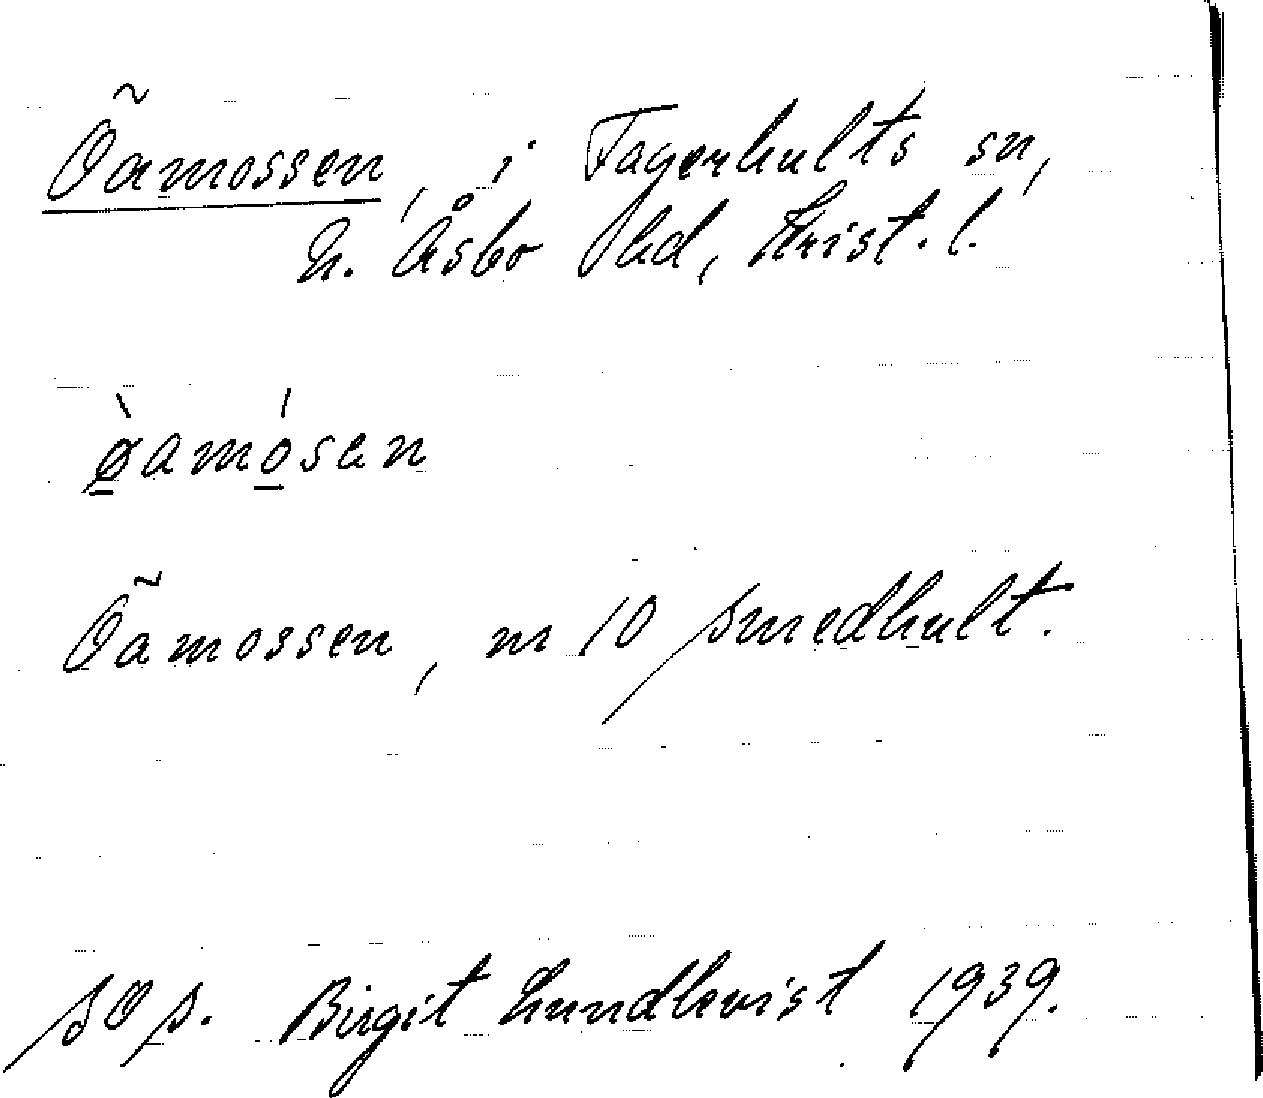 Öamossen, i Fagerhults sn,
N. Åsbo hd, Krist. l.
ø̀amósen
Öamossen, m 10 Smedhult.
SOS. Birgit Lundkvist 1939.